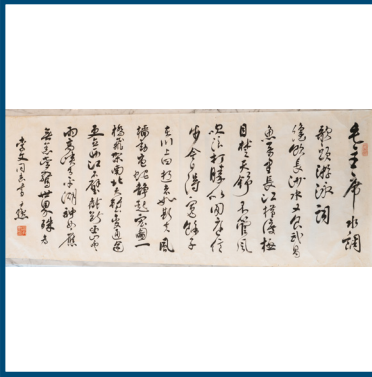 毛主席水調
歌頭游泳詞
纔飲長沙水又食武昌
魚萬里長江橫渡極
目楚天舒不管風
吹浪打勝似閒庭信
步今日得寬餘子
在川上曰逝者如斯夫風
檣動龜蛇靜起宏圖一
橋飛架南北天塹變通途
更立西江石壁截斷巫山雲
雨高峽出平湖神女應
無恙當驚世界殊
文同志